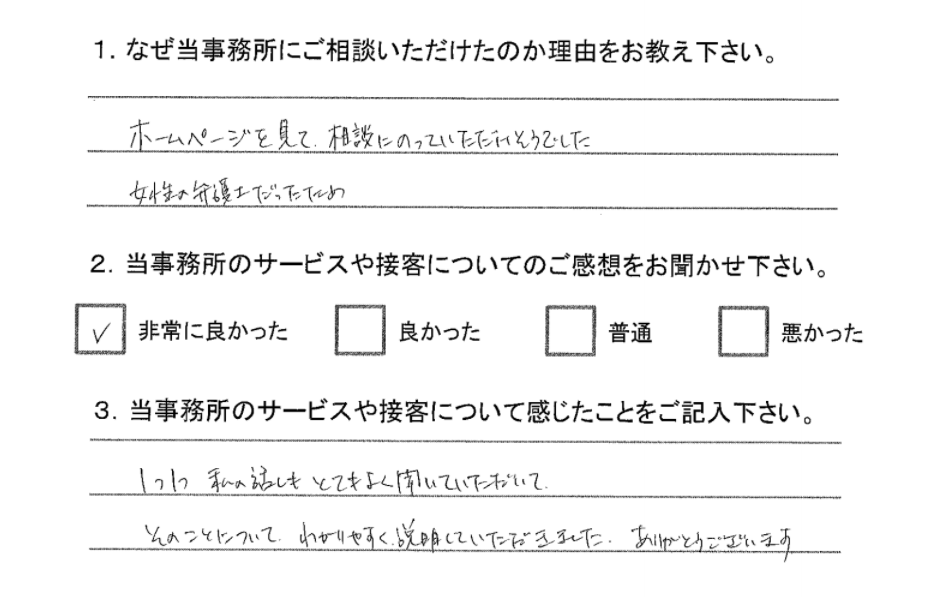 1. なぜ当事務所にご相談いただけたのか理由をお教え下さい。
ホームページを見て、相談にのっていただけそうでした
女性の弁護士だったため
2. 当事務所のサービスや接客についてのご感想をお聞かせ下さい。
✓ 非常に良かった 良かった 普通 悪かった
3. 当事務所のサービスや接客について感じたことをご記入下さい。
1つ1つ 私の話しも とてもよく聞いていただいて、
そのことについて、わかりやすく説明していただきました。ありがとうございます